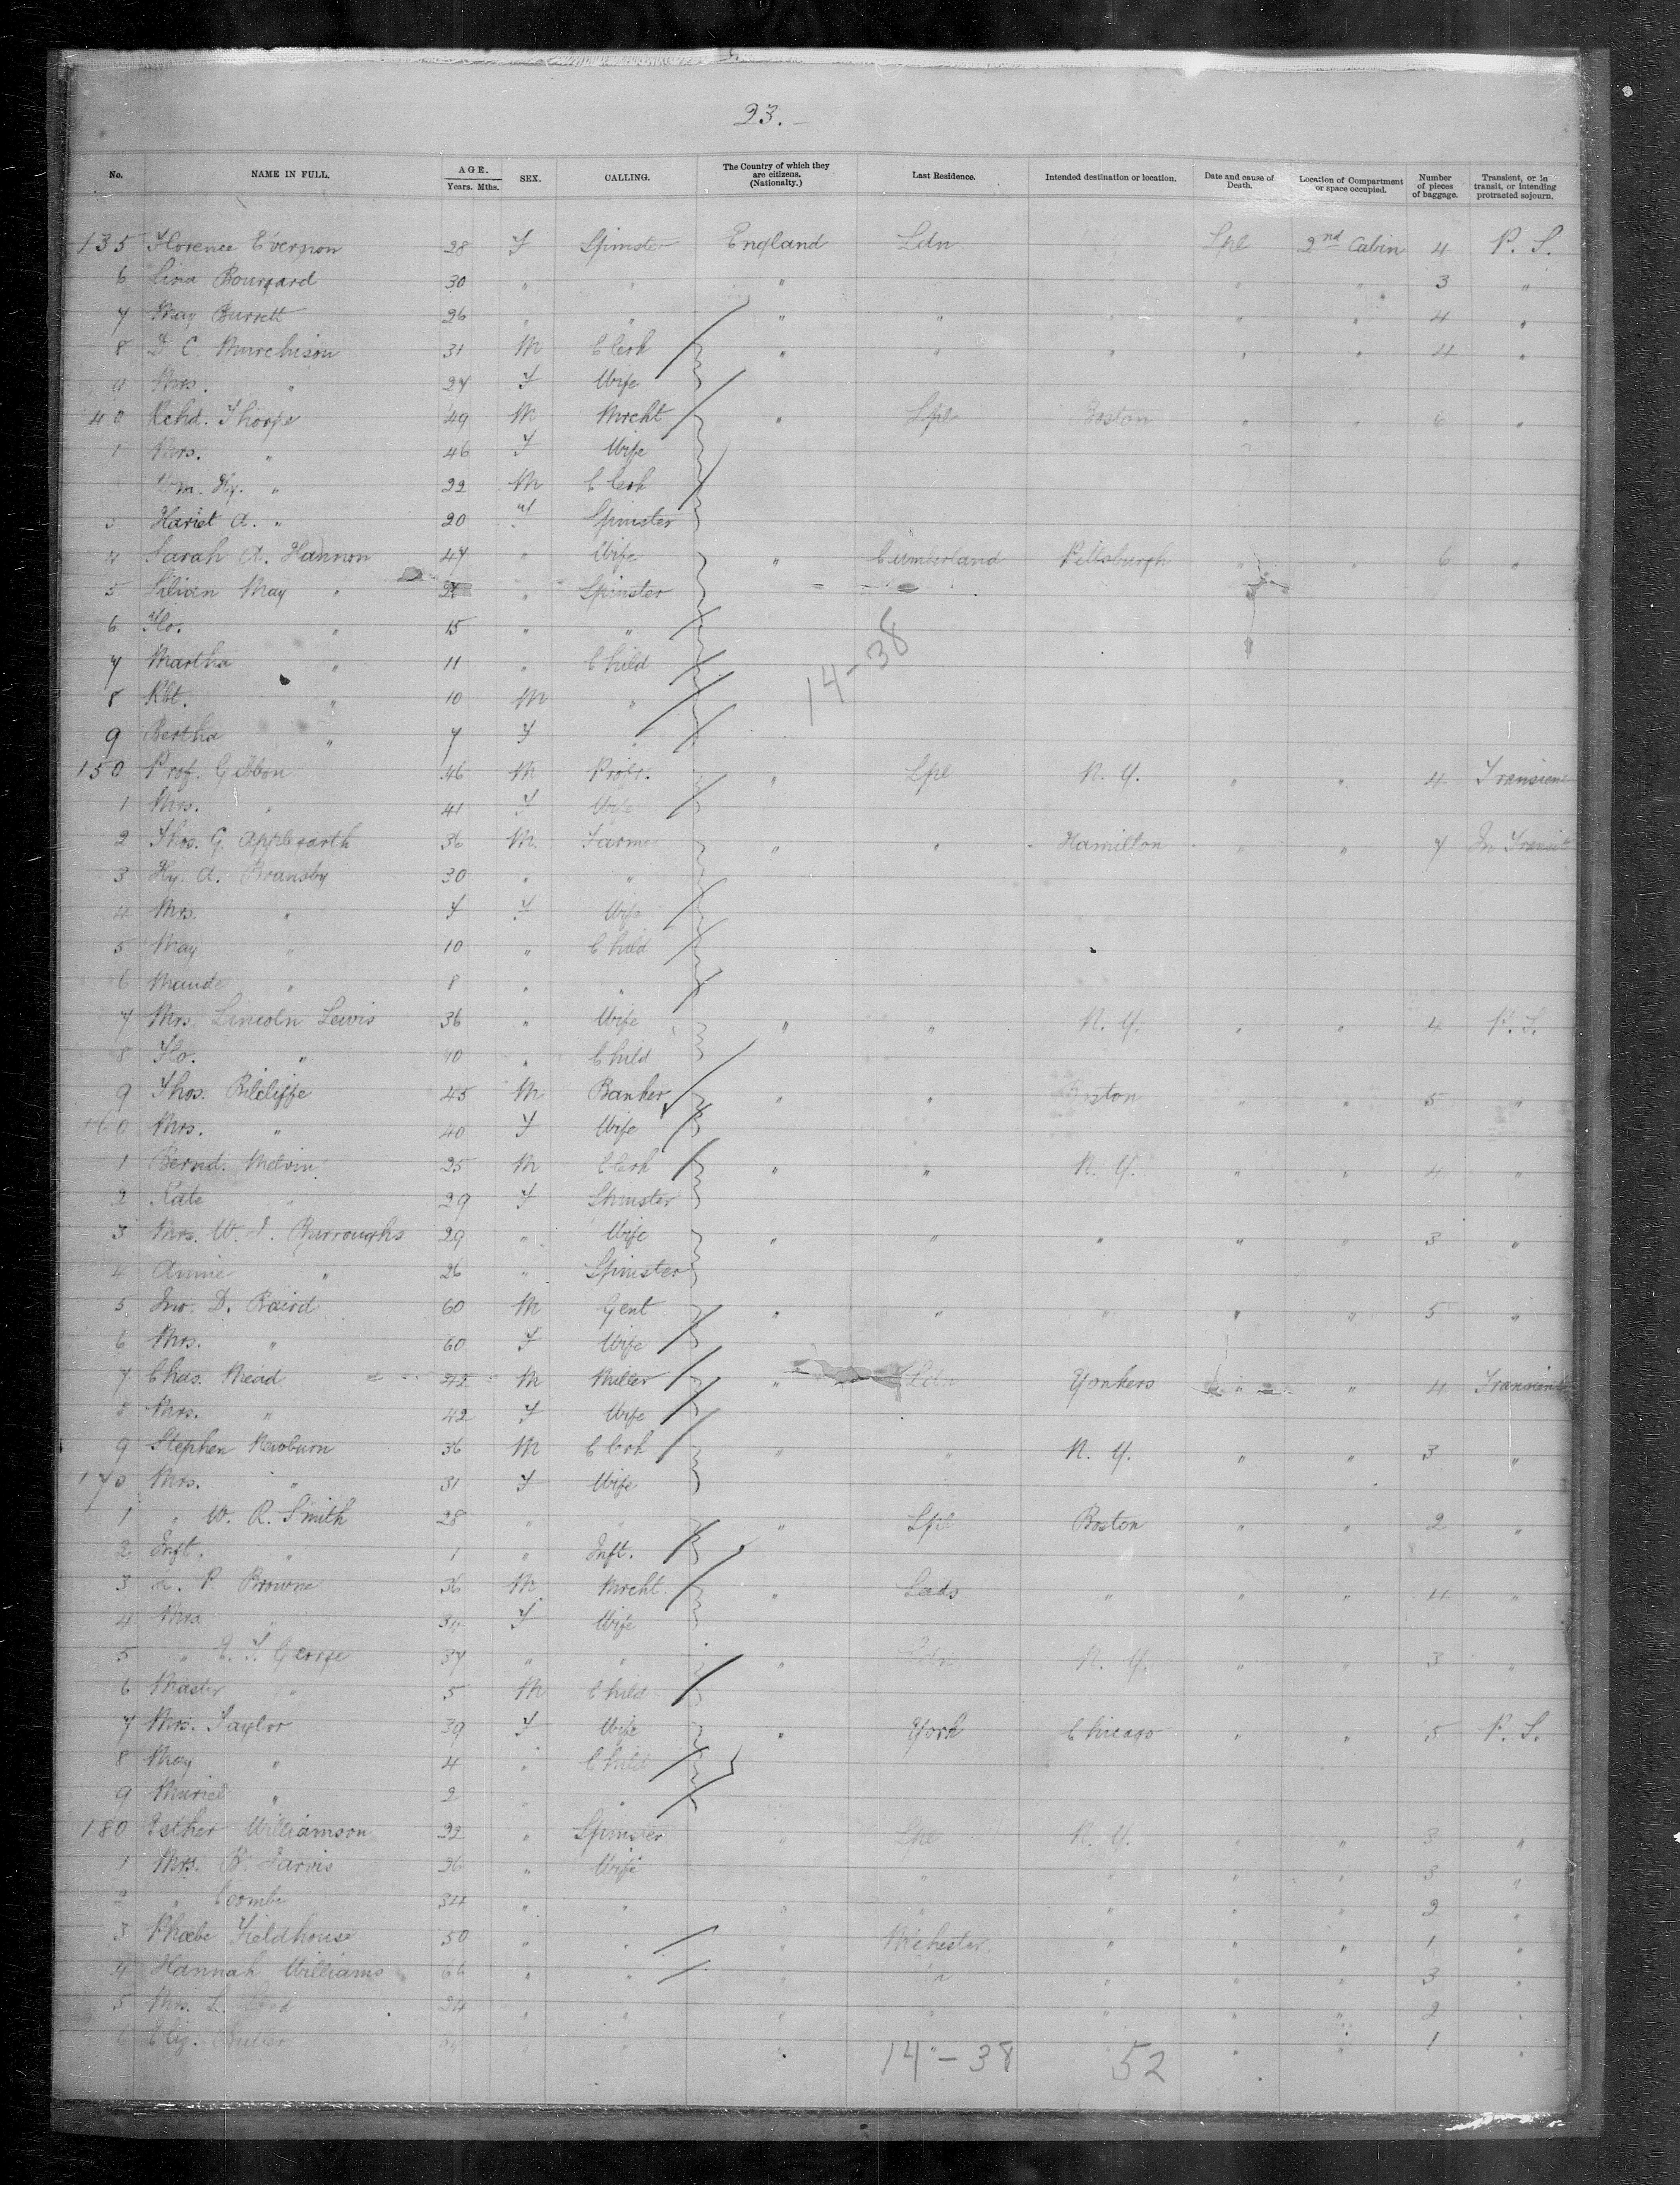 23.
No. NAME IN FULL. AGE. Years. Mths. SEX. CALLING. The Country of which they are citizens. (Nationalty.) Last Residence. Intended destination or location. Date and cause of Death. Location of Compartment or space occupied. Number of pieces of baggage. Transient, or in transit, or intending protracted sojourn.
135 Florence 28 F Spinster England Ldn Lpl 2nd Cabin 4 P. S.
6 Lina Bourgard 30 " " " " " 3 "
7 May Burrett 26 " " " " " " " 4 "
8 D. C. Murchison 31 M Clerk " " " " " 4 "
9 Mrs. " 27 F Wife
40 Rchd. Thorpe 49 M Mrcht " Lpl Boston " " 6 "
1 Mrs. " 46 F Wife
Wm. Hy. " 22 M Clerk
3 Hariet A. " 20 Spinster
4 Sarah A. Hannon 47 " Wife " Cumberland Pittsburgh " " 6 "
5 Lilian May " " Spinster
6 Flo. " 15 " "
7 Martha " 11 " Child
8 Rbt. " 10 M "
14-38
9 Bertha " 7 F "
150 Prof. Gibbon 46 M Profr. " Lpl N. Y. " " 4 Transient
1 Mrs. " 41 F Wife
2 Thos. G. Applegarth 36 M. Farmer " " Hamilton " " 7 In Transit
3 Hy. A. Bransby 30 " "
4 Mrs. " F Wife
5 May " 10 " Child
6 Maude " 8 " "
7 Mrs. Lincoln Lewis 36 " Wife " " N. Y. " " 4 P. S.
8 Flo. " 10 " Child
9 Thos. 45 M Banker " " Boston " " 5 "
160 Mrs. " 40 F Wife
1 Bernd. Melvin 25 M Clerk " " N. Y. " " 4 "
2 Kate " 29 F Spinster
3 Mrs. W. J. Burroughs 29 " Wife " " " " " 3 "
4 Annie " 26 " Spinster
5 Jno. D. Baird 60 M Gent " " " " " 5 "
6 Mrs. " 60 F Wife
7 Chas. Mead 42 M Miller " Ldn Yonkers " " 4 Transient
8 Mrs. " 42 F Wife
9 Stephen Newburn 36 M Clerk " " N. Y. " " 3 "
170 Mrs. " 31 F Wife
1 " W. R. Smith 28 " " " Lpl Boston " " 2 "
2 Inft. " 1 " Inft.
3 P. Browne 36 M Mrcht. " Leeds " " " 4 "
4 Mrs " 34 F Wife
5 " George 37 " " " Ldn N. Y. " " 3 "
6 Master " 5 M Child
7 Mrs. Taylor 39 F Wife " York Chicago " " 5 P. S.
8 May " 4 " Child
9 Muriel " 2 " "
180 Esther Williamson 22 " Spinster " Lpl N. Y. " " 3 "
1 Mrs. B. Jarvis 26 " Wife " " " " " 3 "
2 " Coombe 34 " " " " " " " 2 "
3 Phoebe Fieldhouse 50 " " " Mchester " " " 1 "
4 Hannah Williams 66 " " " " " " " 3 "
5 Mrs. L. 24 " " " " " " " 2 "
6 Eliz. " " " " " " 1 "
14-38 52